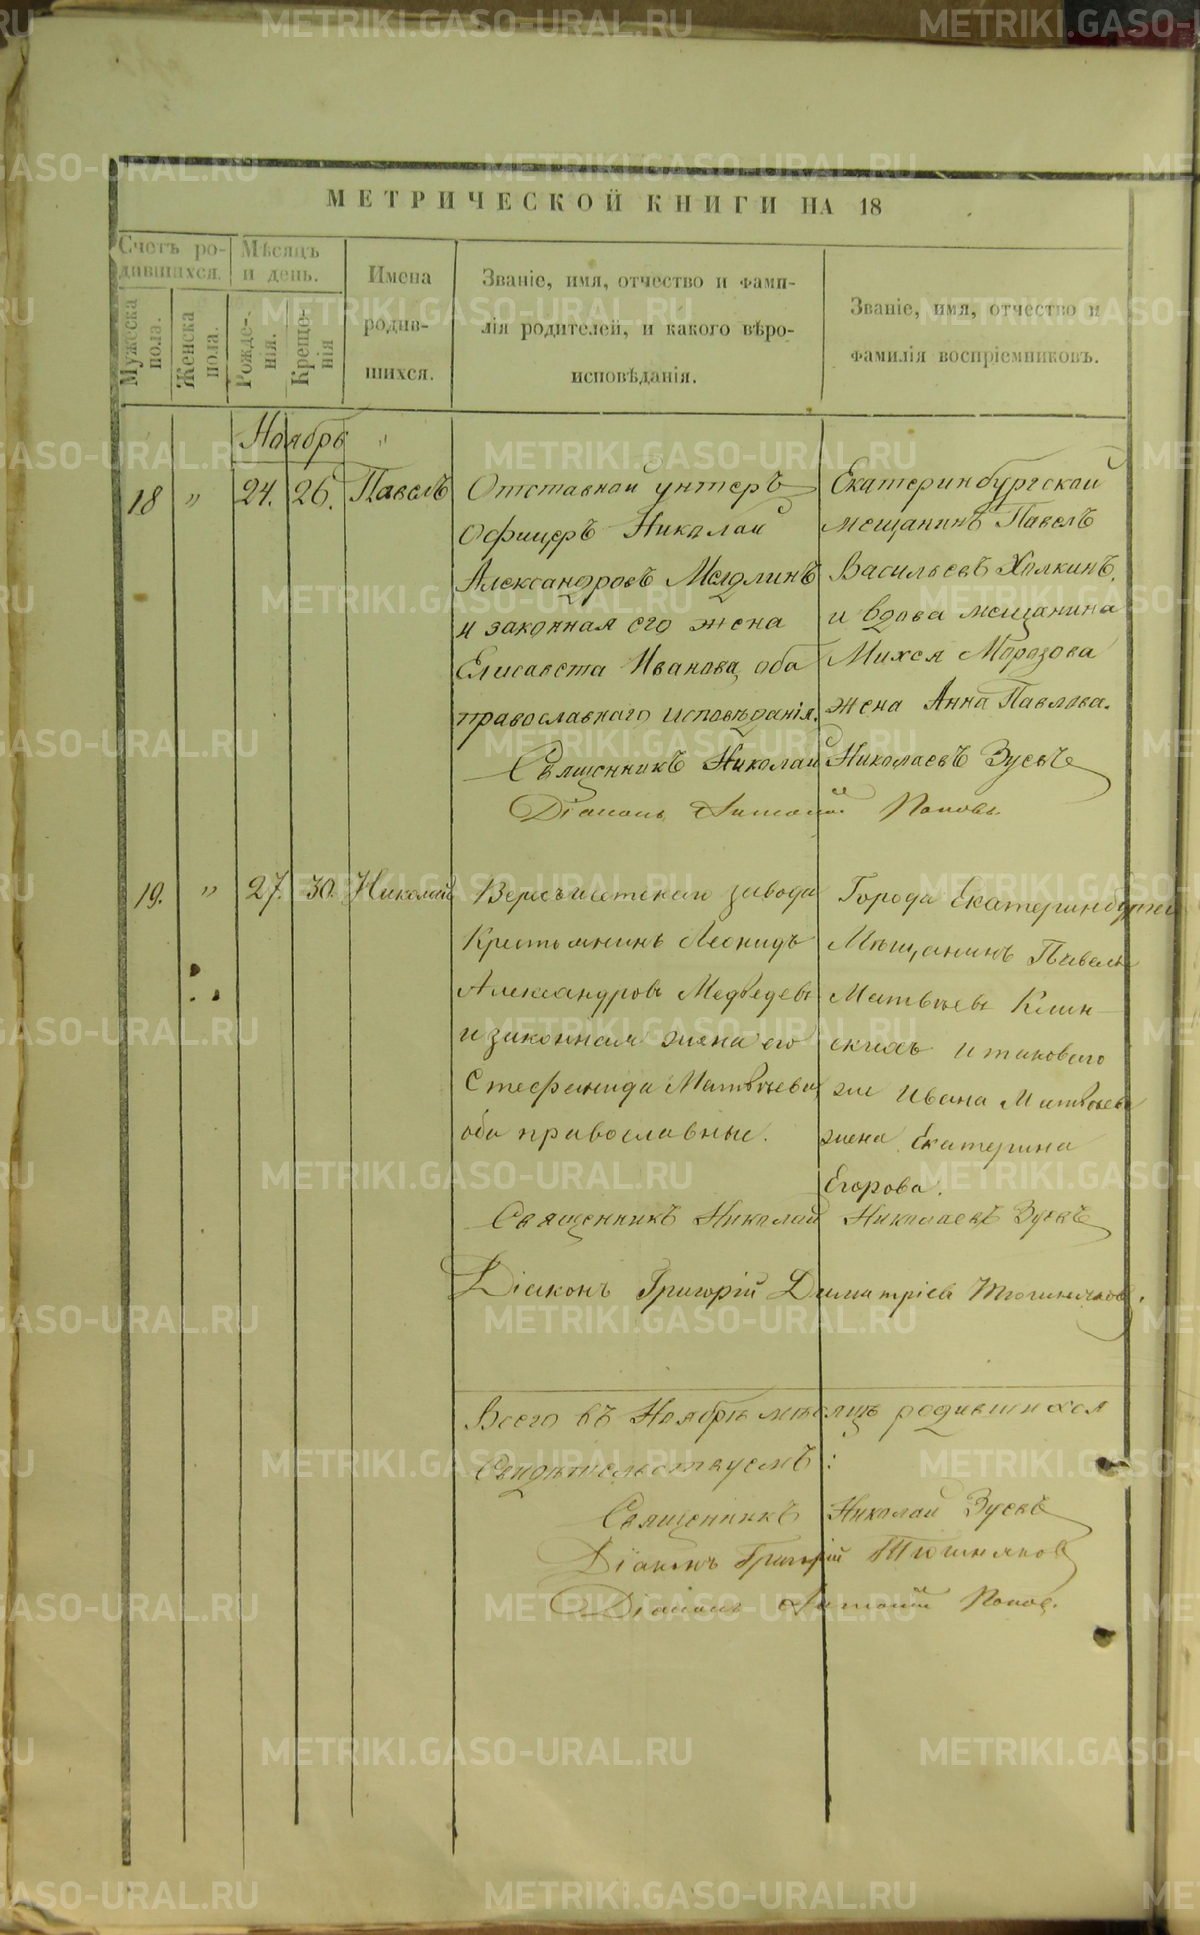 МЕТРИЧЕСКОЙ КНИГИ НА 18
Счетъ ро-
дившихся.
Мѣсяцъ
и день.
Мужеска
пола.
Женска
пола.
Рожде-
нія.
Креще-
нія
Имена
родив-
шихся.
Званіе, имя, отчество и фами-
лія родителей, и какого вѣро-
исповѣданія.
Званіе, имя, отчество и
фамилія воспріемниковъ.
Ноябрь "
18 " 24. 26. Павелъ
Отставной унтеръ
Офицеръ Николай
Александровъ
и законная его жена
Елисавета Иванова, оба
православнаго исповѣданія.
Екатеринбургской
мещанинъ Павелъ
Васильевъ Холкинъ,
и вдова мещанина
Михея Морозова
жена Анна Павлова.
Священникъ Николай Николаевъ Зуевъ
Діаконъ Антоній Поповъ
19. " 27. 30. Николай
завода
Крестьянинъ Леонидъ
Александровъ Медведевъ
и законная жена его
Стефанида Матвѣева,
оба православные.
Города Екатеринбурга
Мѣщанинъ Павелъ
Матвѣевъ Клин-
скихъ и таковаго
же Ивана Матвѣева
жена Екатерина
Егорова.
Священникъ Николай Николаевъ Зуевъ
Діаконъ Григорій Димитріевъ
Всего въ Ноябрѣ мѣсяцѣ родившихся
Свидѣтельствуемъ:
Священникъ Николай Зуевъ
Діаконъ Григорій
Діаконъ Антоній Попов.
METRIKI.GASO-URAL.RU